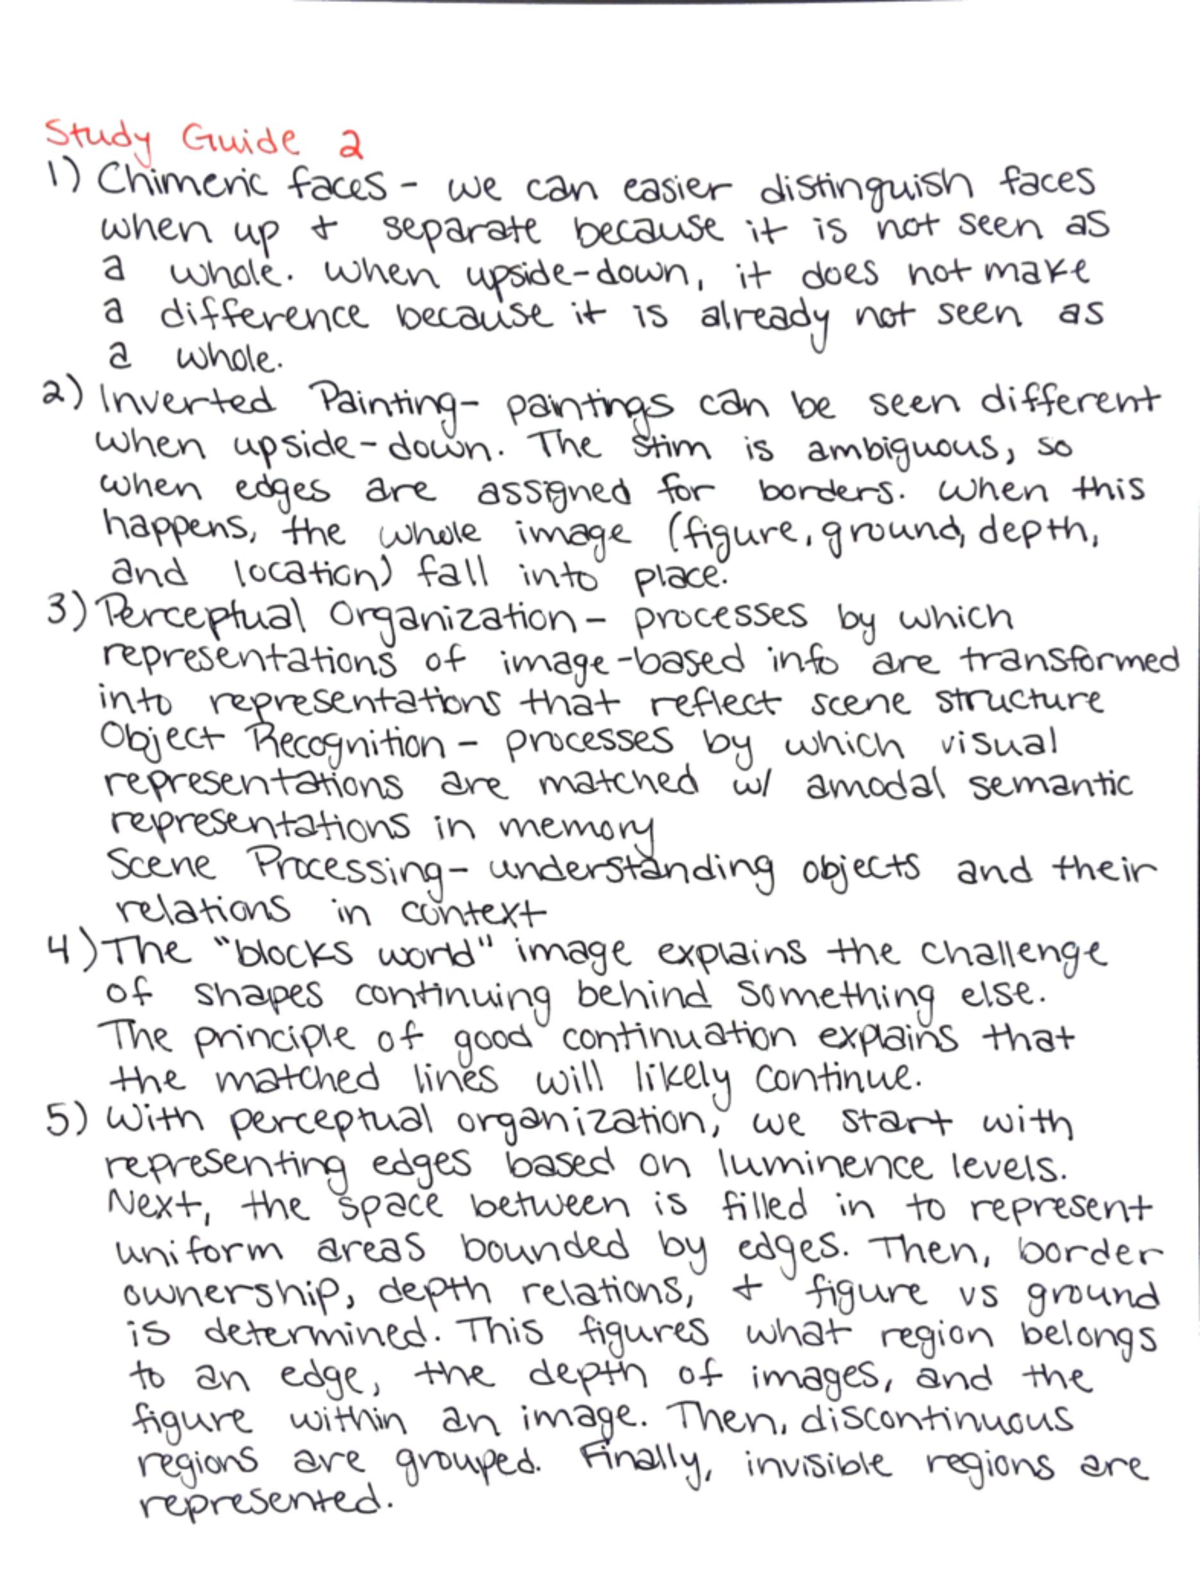 Study Guide 2
1) Chimeric faces - we can easier distinguish faces
when up + separate because it is not seen as
a whole. When upside-down, it does not make
a difference because it is already not seen as
a whole.
2) Inverted Painting- paintings can be seen different
when upside-down. The stim is ambiguous, so
when edges are assigned for borders. When this
happens, the whole image (figure, ground, depth,
and location) fall into place.
3) Perceptual Organization - processes by which
representations of image-based info are transformed
into representations that reflect scene structure
Object Recognition - processes by which visual
representations are matched w/ amodal semantic
representations in memory
Scene Processing- understanding objects and their
relations in context
4) The "blocks world" image explains the challenge
of shapes continuing behind something else.
The principle of good continuation explains that
the matched lines will likely continue.
5) With perceptual organization, we start with
representing edges based on luminence levels.
Next, the space between is filled in to represent
uniform areas bounded by edges. Then, border
ownership, depth relations, + figure vs ground
is determined. This figures what region belongs
to an edge, the depth of images, and the
figure within an image. Then, discontinuous
regions are grouped. Finally, invisible regions are
represented.